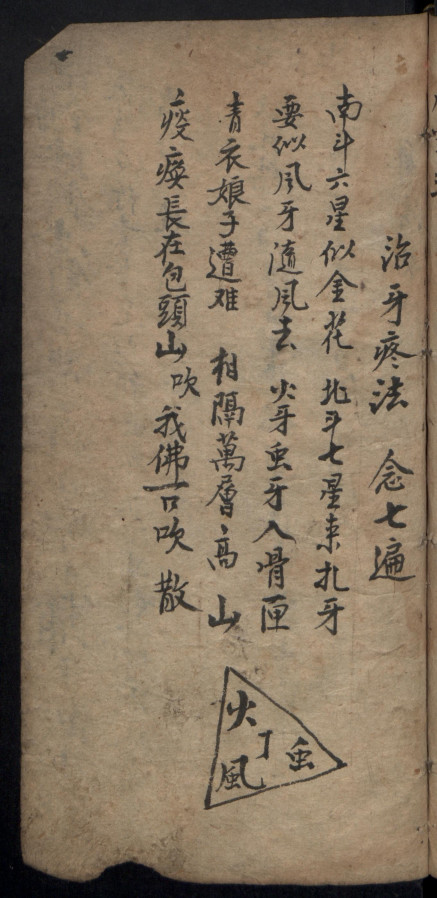 治牙疼法 念七遍
南斗六星似金花 北斗七星來扎牙
要似風牙隨風去 火牙虫牙入骨匣
青衣娘子遭难 相隔萬層高山
疫瘓長在包頭山吹 我佛一口吹散
火
丁 虫
風